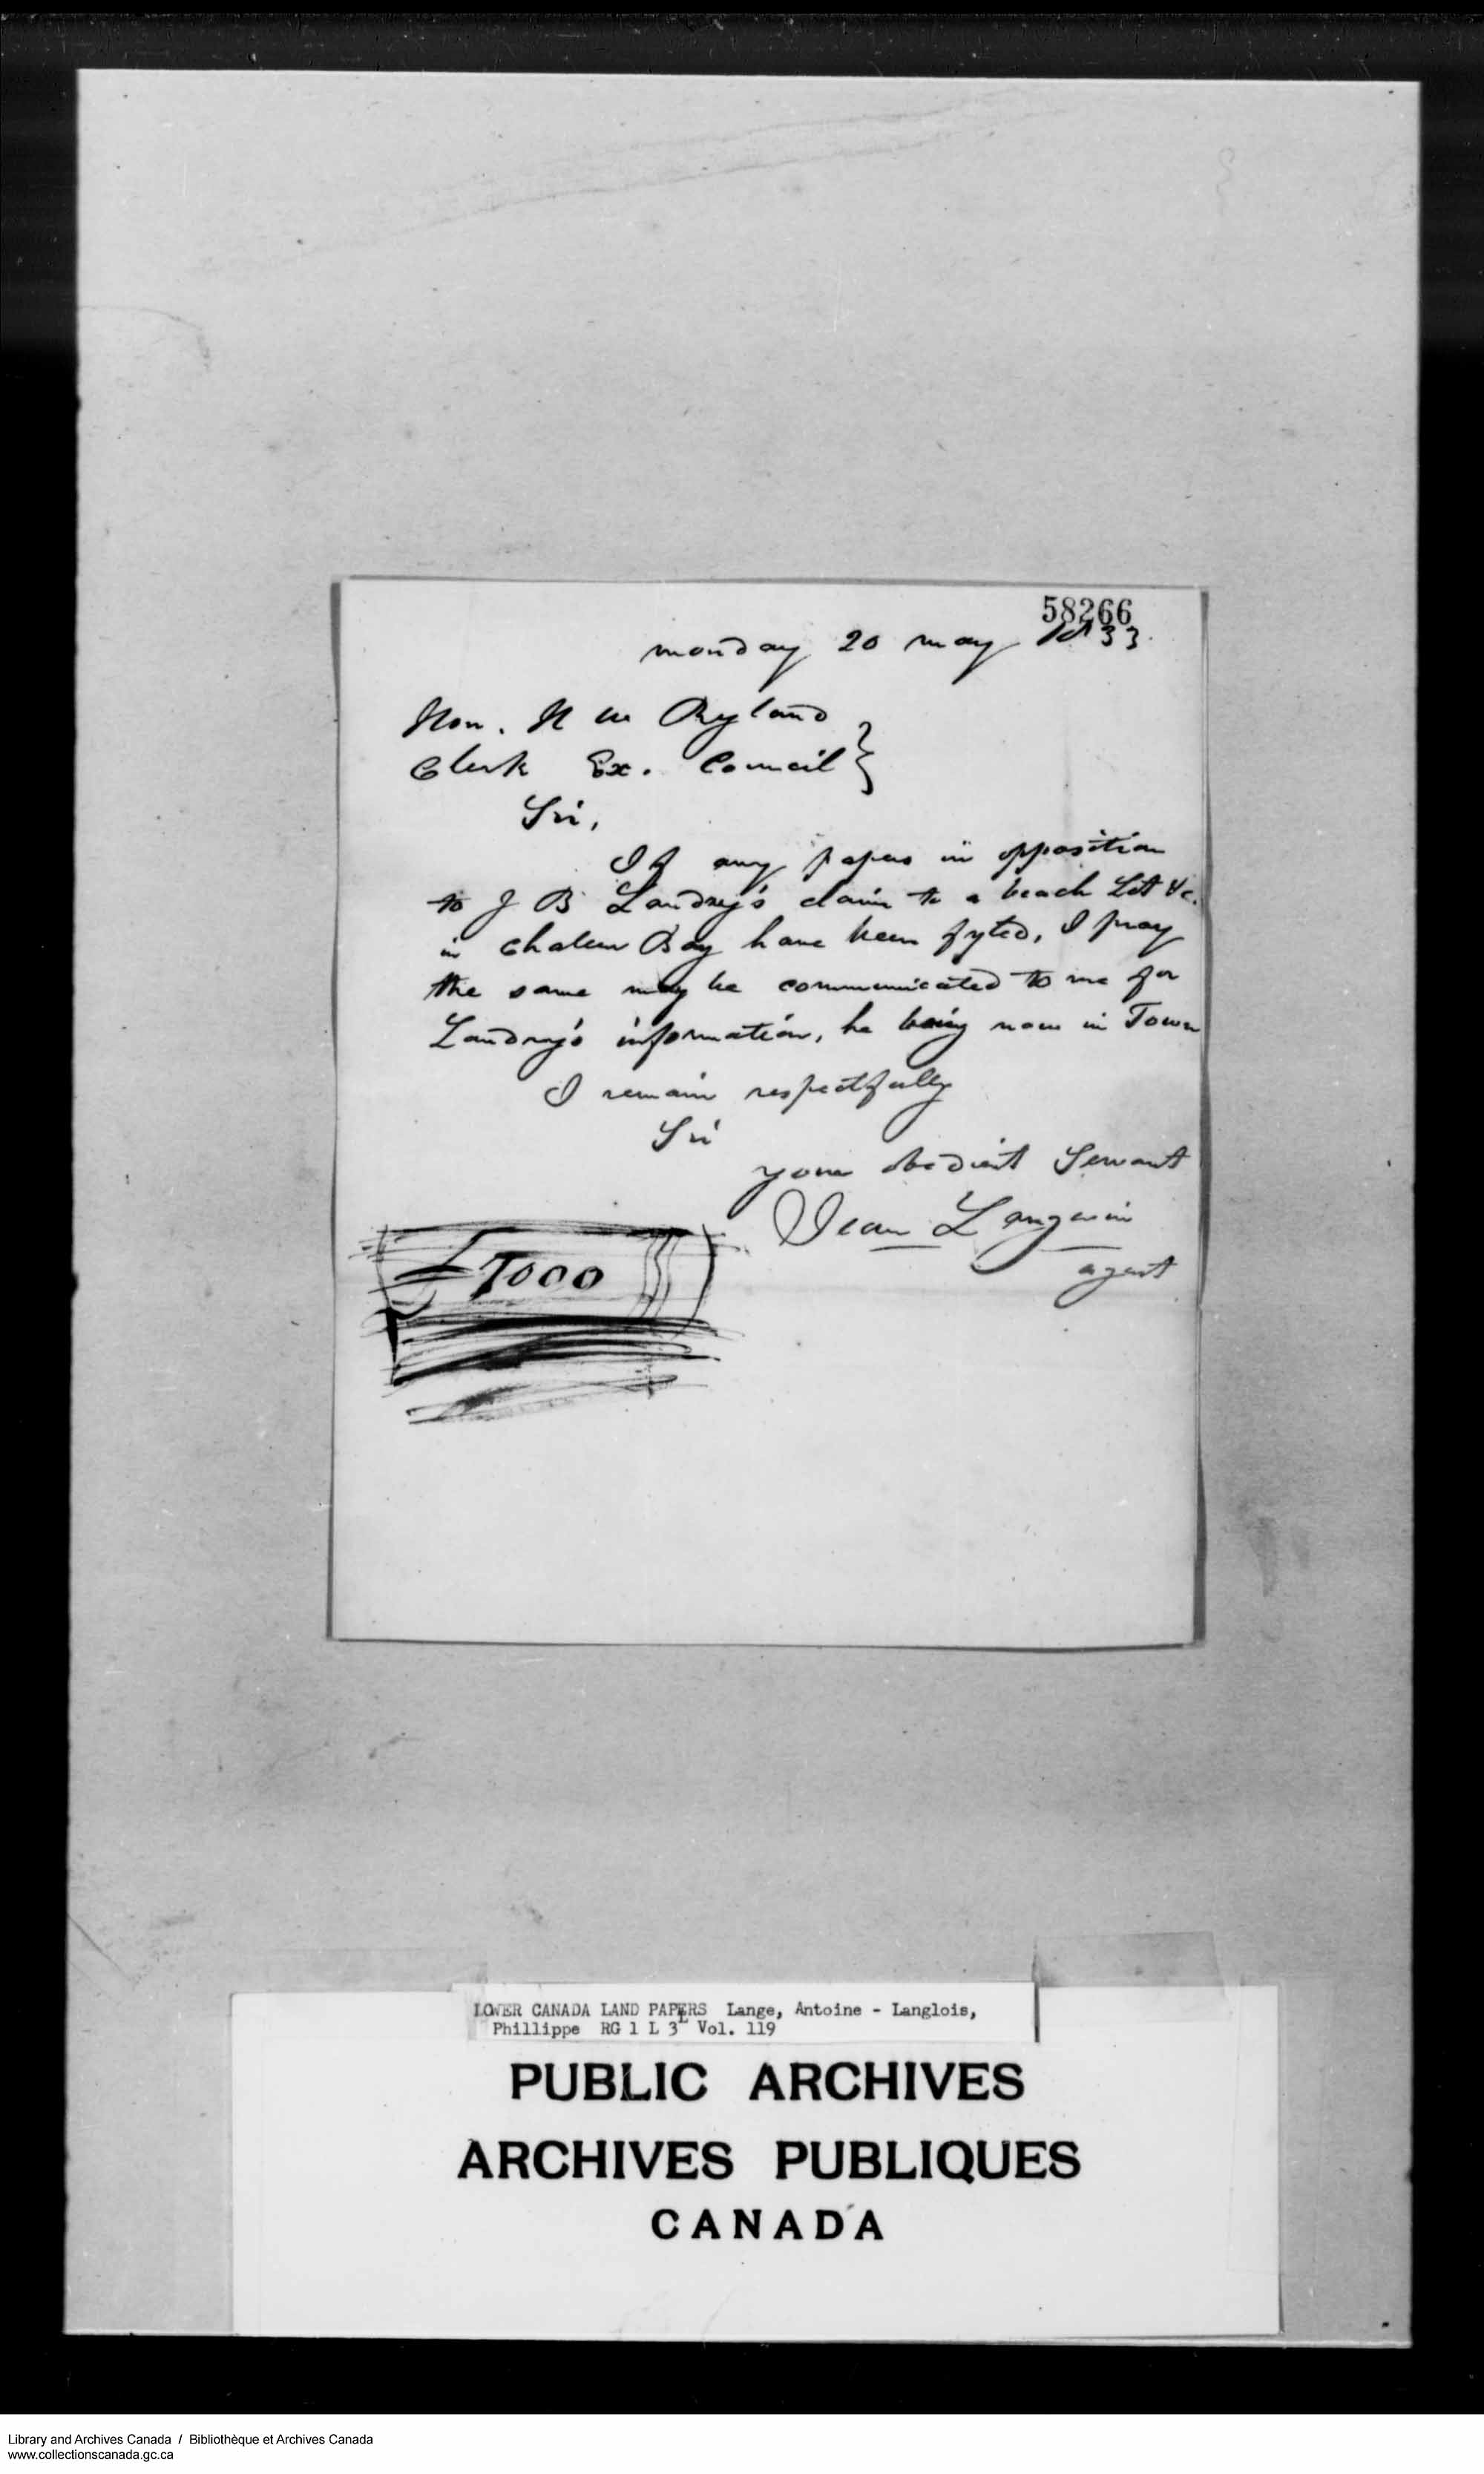 58266
monday 20 may 1833.
Hon. H W Ryland
Clerk Ex. Council }
Sir,
If any papers in opposition
to J B Landry's claim to a beach Lot &c.
in Chaleur Bay have been fyled, I pray
the same may be communicated to me for
Landry's information, he being now in Town
I remain respectfully
Sir
your obedient Servant
Jean Langevin
agent
1000
LOWER CANADA LAND PAPERS Lange, Antoine - Langlois,
Phillippe RG 1 L 3L Vol. 119
PUBLIC ARCHIVES
ARCHIVES PUBLIQUES
CANADA
Library and Archives Canada / Bibliothèque et Archives Canada
www.collectionscanada.gc.ca